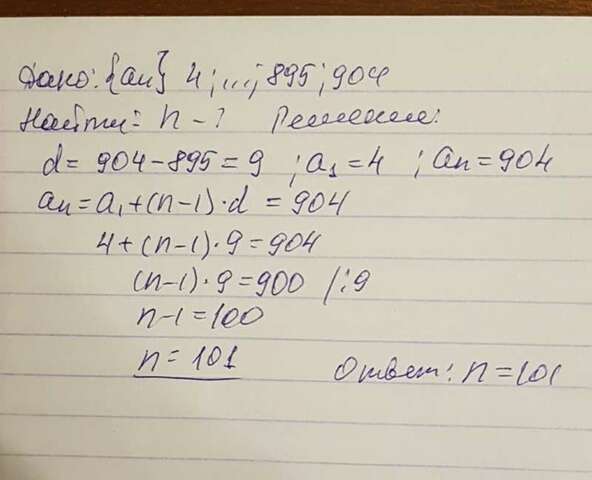 Дано: {an} 4;...; 895; 904
Найти: n-? Решение:
d = 904-895=9 ; a₁=4 ; an=904
an=a₁+(n-1)·d = 904
4+(n-1)·9=904
(n-1)·9=900 /:9
n-1=100
n=101
Ответ: n=101